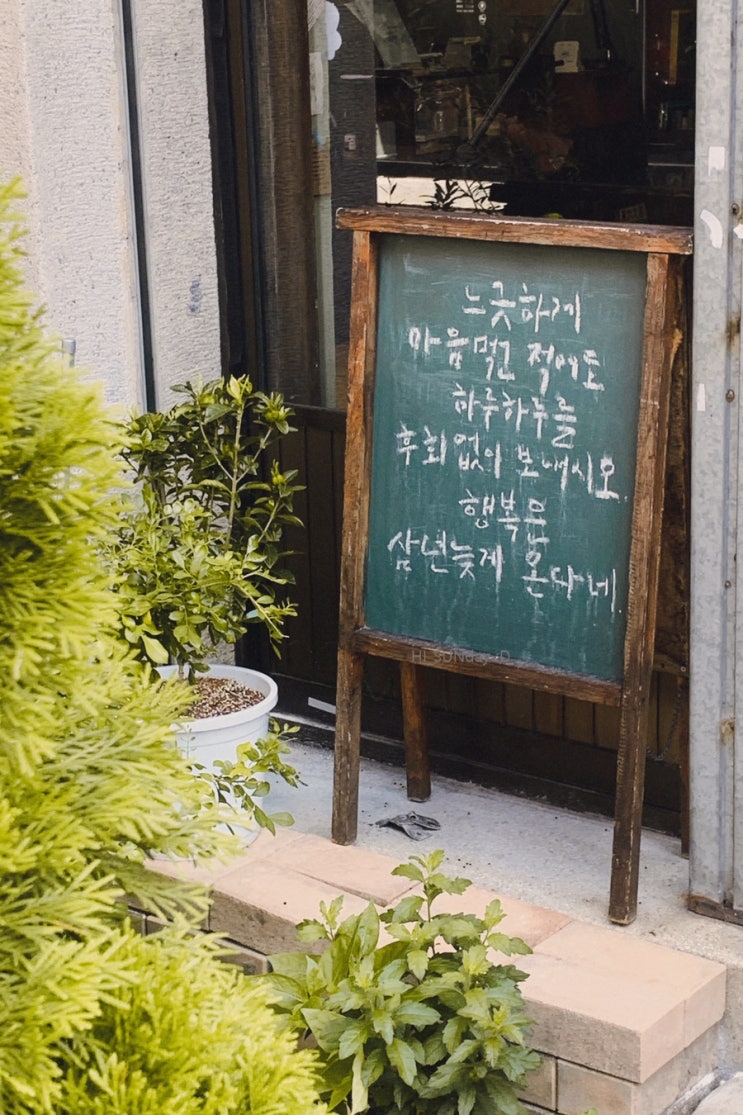 느긋하게
마음먹고 적어도
하루하루를
후회없이 보내시오
행복은
삼년늦게 온다네.